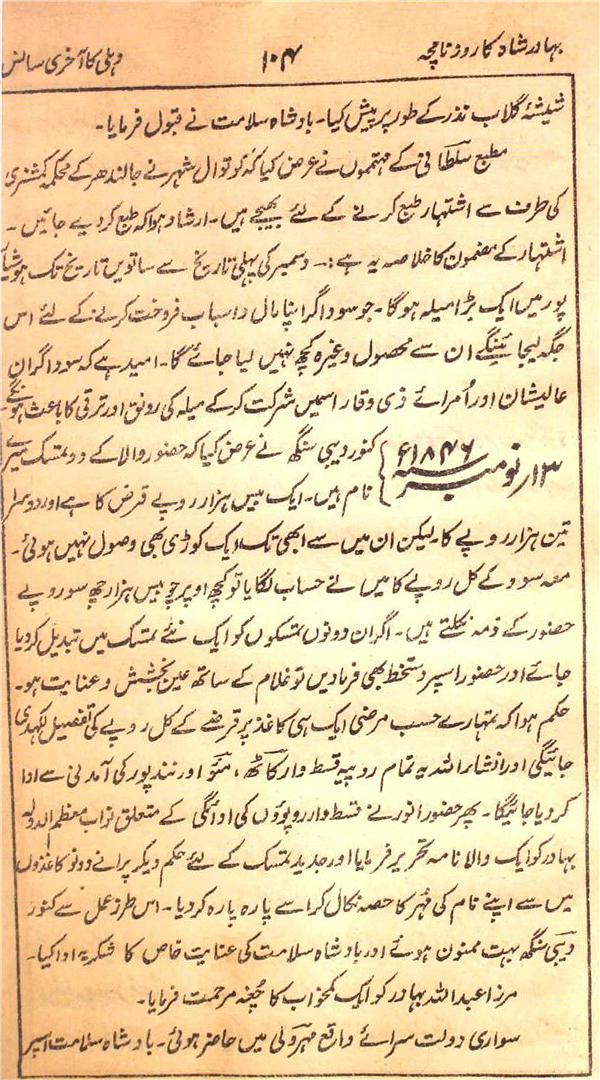 بہادر شاہ کا روزنامچہ ۱۰۴ دہلی کا آخری سانس
شیشۂ گلاب نذر کے طور پر پیش کیا۔ بادشاہ سلامت نے قبول فرمایا۔
مطبع سلطانی کے مہتموں نے عرض کیا کہ کوتوال شہر نے جالندھر کے محکمہ کمشنری
کی طرف سے اشتہار طبع کرنے کے لئے بھیجے ہیں۔ ارشاد ہوا کہ طبع کر دیے جائیں۔
اشتہار کے مضمون کا خلاصہ یہ ہے:۔ دسمبر کی پہلی تاریخ سے ساتویں تاریخ تک ہوشیار
پور میں ایک بڑا میلہ ہوگا۔ جو سوداگر اپنا مال و اسباب فروخت کرنے کے لئے اس
جگہ لیجائینگے ان سے محصول وغیرہ کچھ نہیں لیا جائے گا۔ امید ہے کہ سوداگران
عالیشان اور اُمرائے ذی وقار اسمیں شرکت کر کے میلہ کی رونق اور ترقی کا باعث ہونگے
۱۳ نومبر سنہ ۱۸۴۶ء } کنور دیبی سنگھ نے عرض کیا کہ حضور والا کے دو تمسک میرے
نام ہیں۔ ایک بیس ہزار روپے قرض کا ہے اور دوسرا
تین ہزار روپے کا۔ لیکن ان میں سے ابھی تک ایک کوڑی بھی وصول نہیں ہوئی۔
معہ سود کے کل روپے کا میں نے حساب لگایا تو کچھ اوپر چوبیس ہزار چھ سو روپے
حضور کے ذمہ نکلتے ہیں۔ اگر ان دونوں تمسکوں کو ایک نئے تمسک میں تبدیل کر دیا
جائے اور حضور اسپر دستخط بھی فرما دیں تو غلام کے ساتھ عین بخشش و عنایت ہو۔
حکم ہوا کہ تمہارے حسب مرضی ایک ہی کاغذ پر قرضے کے کل روپے کی تفصیل لکھدی
جائیگی اور انشاء اللہ یہ تمام روپیہ قسط وار کاٹھ، مئو اور نندپور کی آمدنی سے ادا
کر دیا جائیگا۔ پھر حضور انور نے قسط وار روپوؤں کی ادائگی کے متعلق نواب معظم الدولہ
بہادر کو ایک والا نامہ تحریر فرمایا اور جدید تمسک کے لئے حکم دیکر پرانے دونو کاغذوں
میں سے اپنے نام کی مُہر کا حصہ نکال کر اسے پارہ پارہ کر دیا۔ اس طرز عمل سے کنور
دیبی سنگھ بہت ممنون ہوئے اور بادشاہ سلامت کی عنایت خاص کا شکریہ ادا کیا۔
مرزا عبد اللہ بہادر کو ایک کمخواب کا چُغہ مرحمت فرمایا۔
سواری دولت سرائے واقع مہرولی میں حاضر ہوئی۔ بادشاہ سلامت اسپر